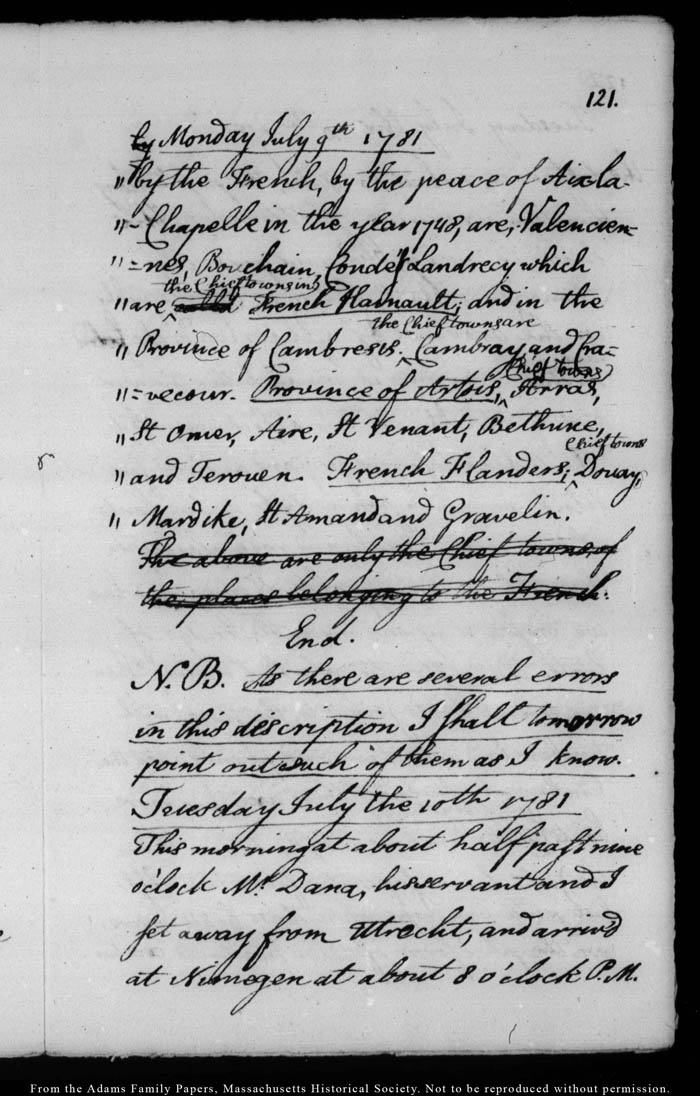 121.
by Monday July 9th 1781
"by the French, by the peace of Aix la-
"-Chapelle in the year 1748, are, Valencien=
"=nes, Bouchain, Condé, Landrecy which
the Chief towns in
"are called French Hainault; and in the
the Chief towns are
"Province of Cambresis. Cambray and Cra=
Chief towns
"=vecour. Province of Artois, Arras,
"St Omer, Aire, St Venant, Bethune,
Chief towns
"and Terouen. French Flanders; Douay,
"Mardike, St Amand and Gravelin.
The above are only the Chief towns of
the places belonging to the French.
End.
N.B. As there are several errors
in this description I shall tomorrow
point out such of them as I know.
Tuesday July the 10th 1781
This morning at about half past nine
o'clock Mr. Dana, his servant and I
set away from Utrecht, and arriv'd
at Nimegen at about 8 o'clock P.M.
From the Adams Family Papers, Massachusetts Historical Society. Not to be reproduced without permission.